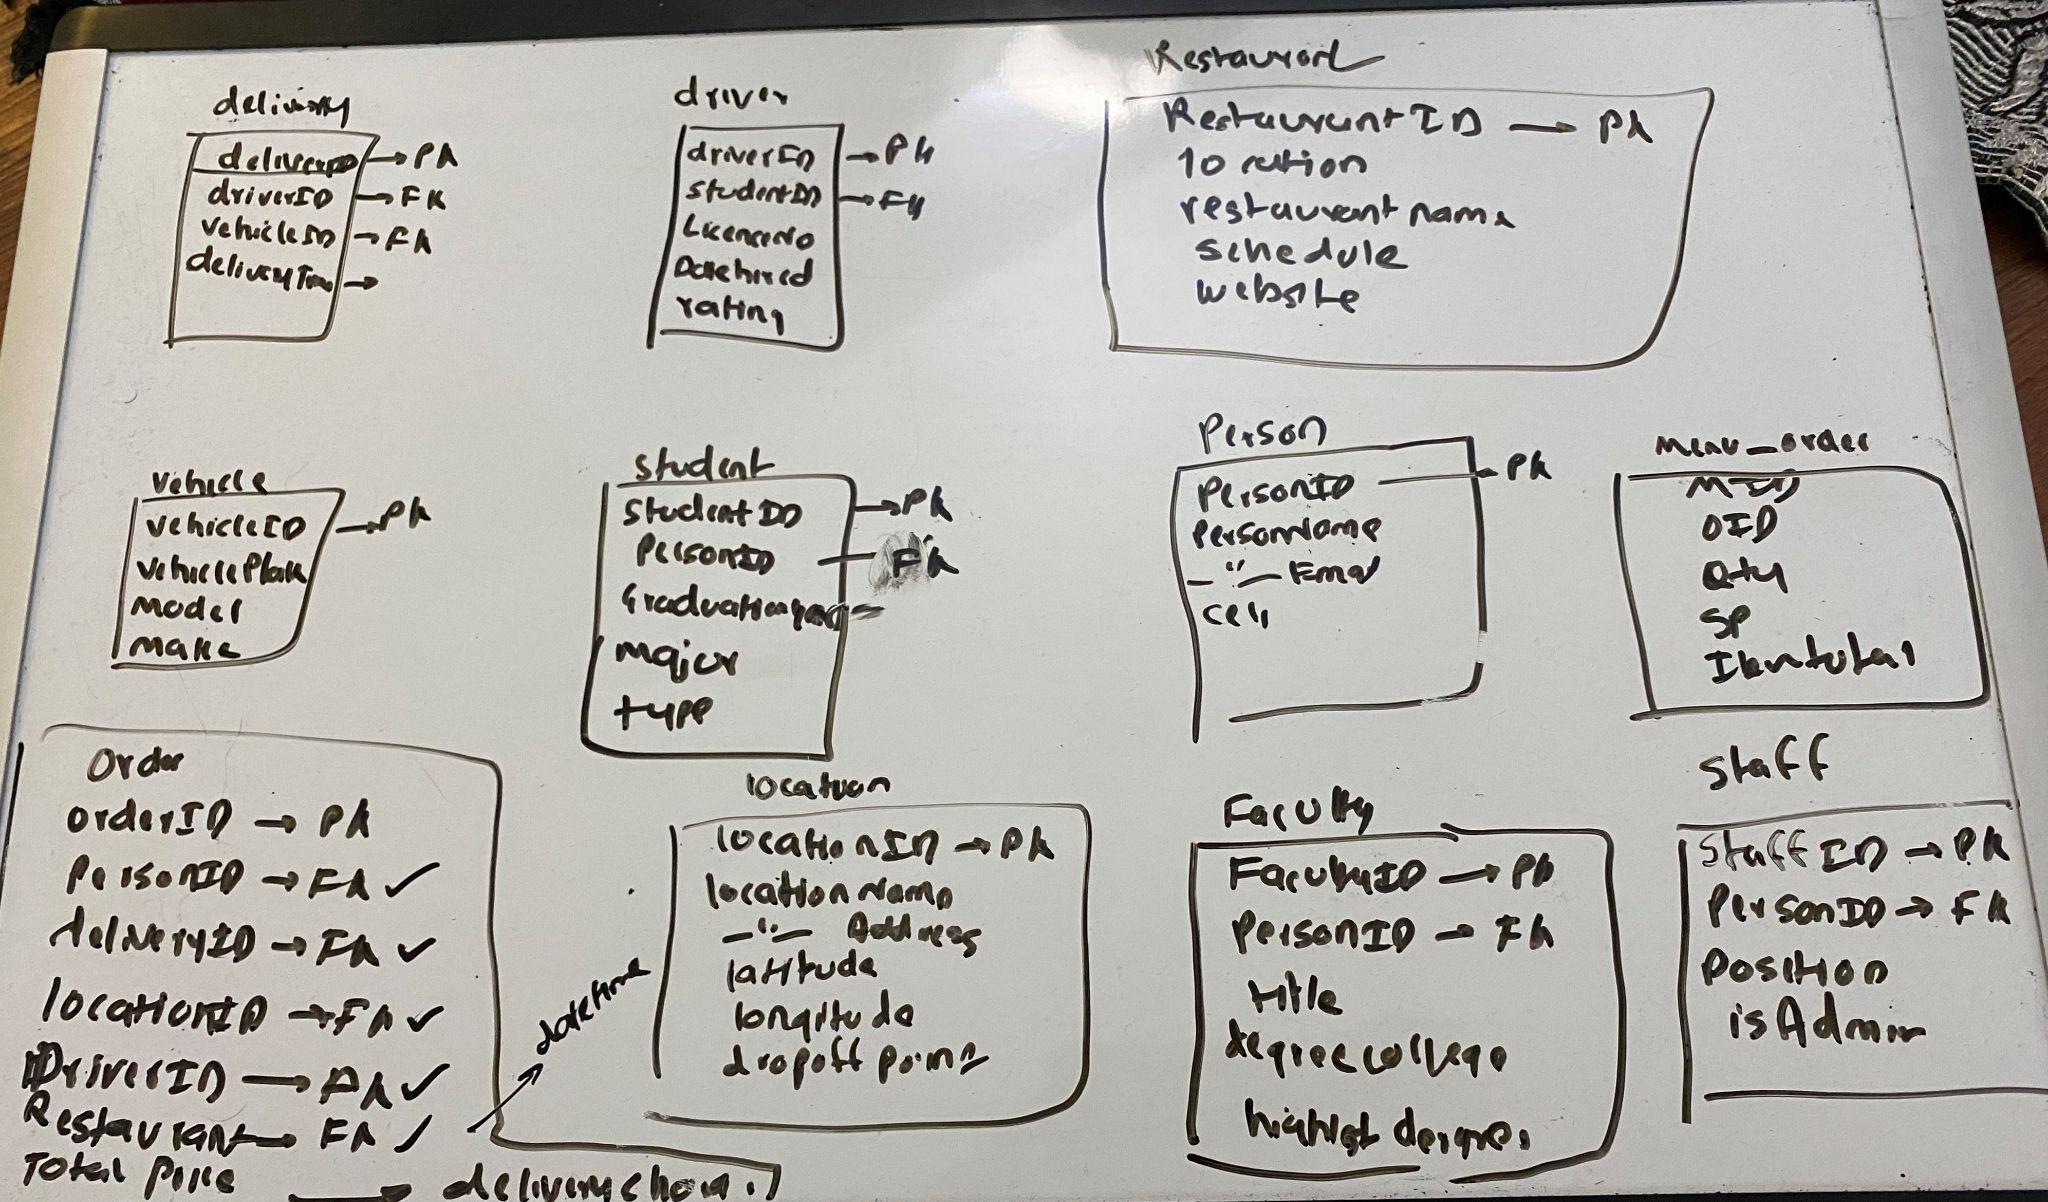 delivery
deliveryID → PK
driverID → FK
vehicleID → FK
deliveryTime →
driver
driverID → PK
studentID → FK
LicenceNo
Datehired
rating
Restaurant
RestaurantID → PK
location
restaurant name
schedule
website
vehicle
vehicleID → PK
vehiclePlate
Model
make
student
studentID → PK
PersonID — FK
Graduationyear
major
type
Person
PersonID → PK
PersonName
—"— Email
cell
menu_order
MID
OID
Qty
SP
Itemtotal
Order
orderID → PK
PersonID → FK ✓
deliveryID → FK ✓
locationID → FK ✓
DriverID → FK ✓
Restaurant → FK ✓
Total Price → 
datetime
location
locationID → PK
locationName
—"— Address
latitude
longitude
dropoff point
Faculty
FacultyID → PK
PersonID → FK
title
degree college
highest degree
staff
staffID → PK
PersonID → FK
Position
isAdmin